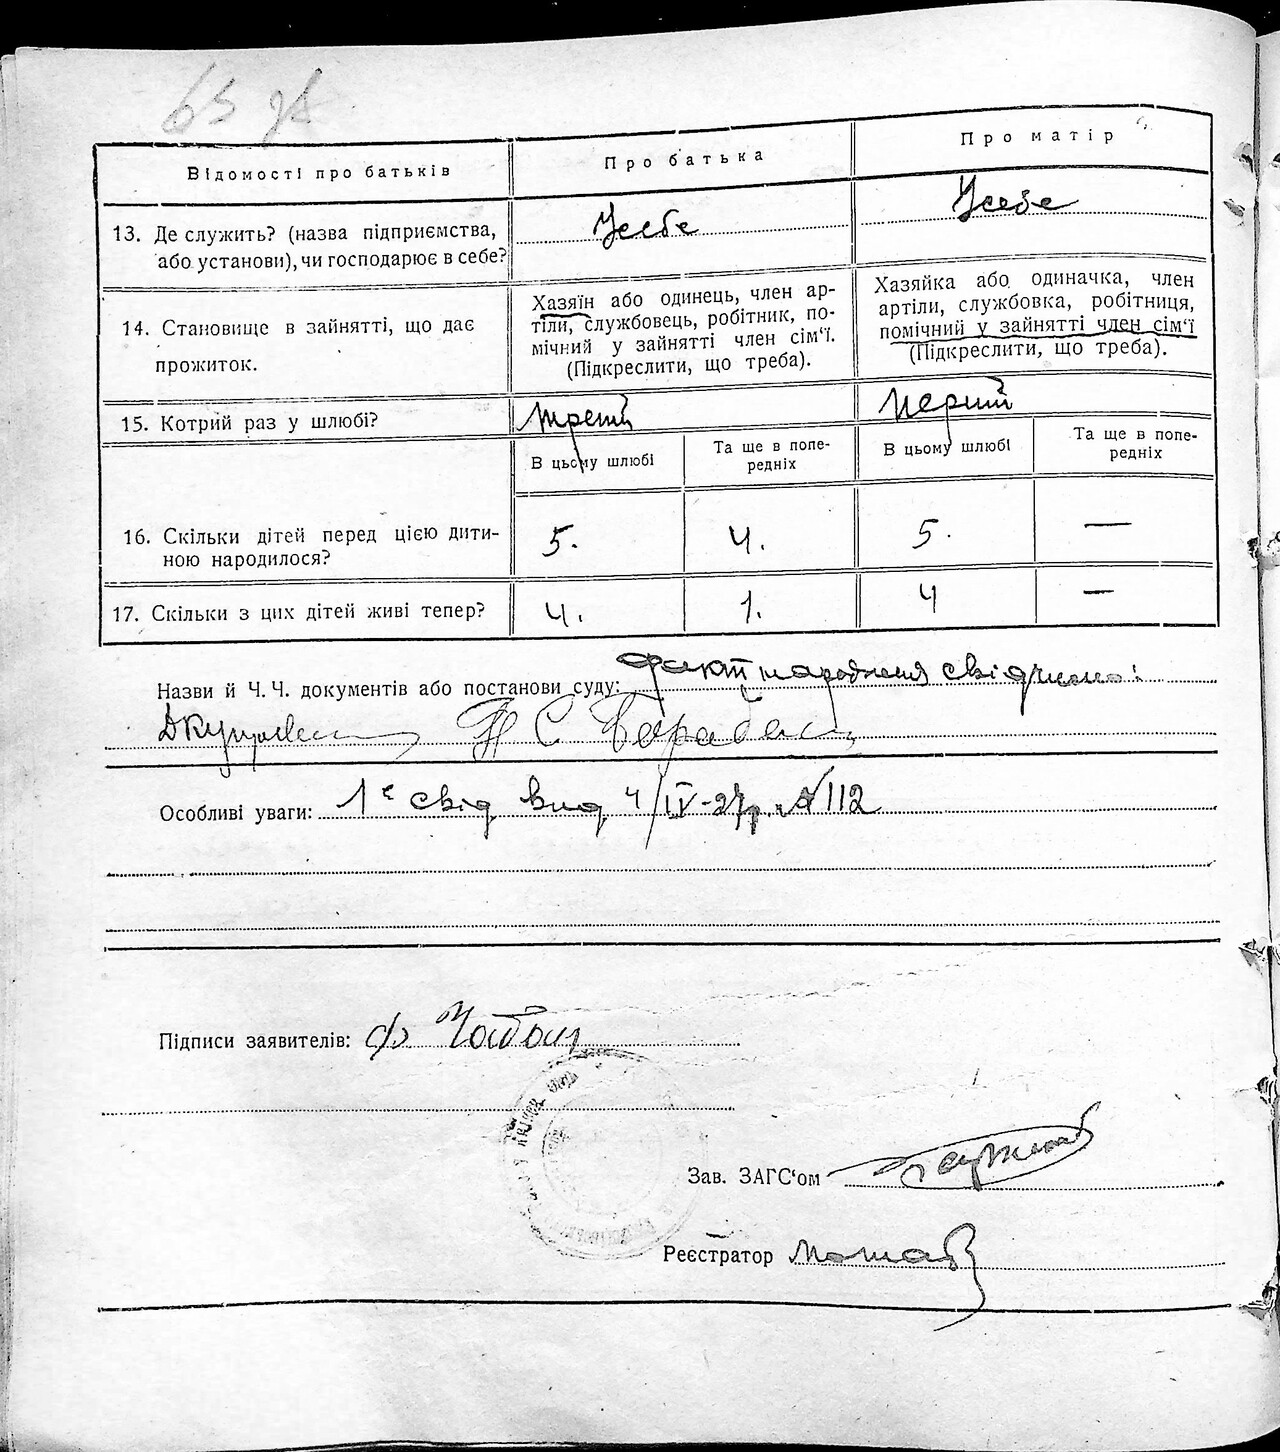 65 зв
Відомості про батьків
Про батька
Про матір
13. Де служить? (назва підприємства, або установи), чи господарює в себе?
У себе
У себе
14. Становище в зайнятті, що дає прожиток.
Хазяїн або одинець, член ар-
тіли, службовець, робітник, по-
мічний у зайнятті член сім‘ї.
(Підкреслити, що треба).
Хазяйка або одиначка, член
артіли, службовка, робітниця,
помічний у зайнятті член сім‘ї
(Підкреслити, що треба).
15. Котрий раз у шлюбі?
третій
перший
В цьому шлюбі
Та ще в попе-
редніх
В цьому шлюбі
Та ще в попе-
редніх
16. Скільки дітей перед цією дити-
ною народилося?
5.
4.
5.
—
17. Скільки з цих дітей живі тепер?
4.
1.
4
—
Назви й Ч. Ч. документів або постанови суду: факт народження свідчимо:
Особливі уваги: 1е свід вид 4/IV-27р. № 112
Підписи заявителів:
Зав. ЗАГС‘ом
Реєстратор